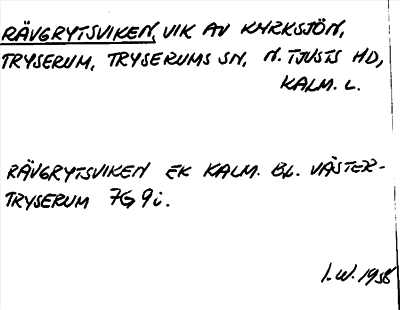 RÄVGRYTSVIKEN, VIK AV KYRKSJÖN,
TRYSERUM, TRYSERUMS SN, N. TJUSTS HD,
KALM. L.
RÄVGRYTSVIKEN EK KALM. BL. VÄSTER-
TRYSERUM 7G 9i.
I.W. 1958